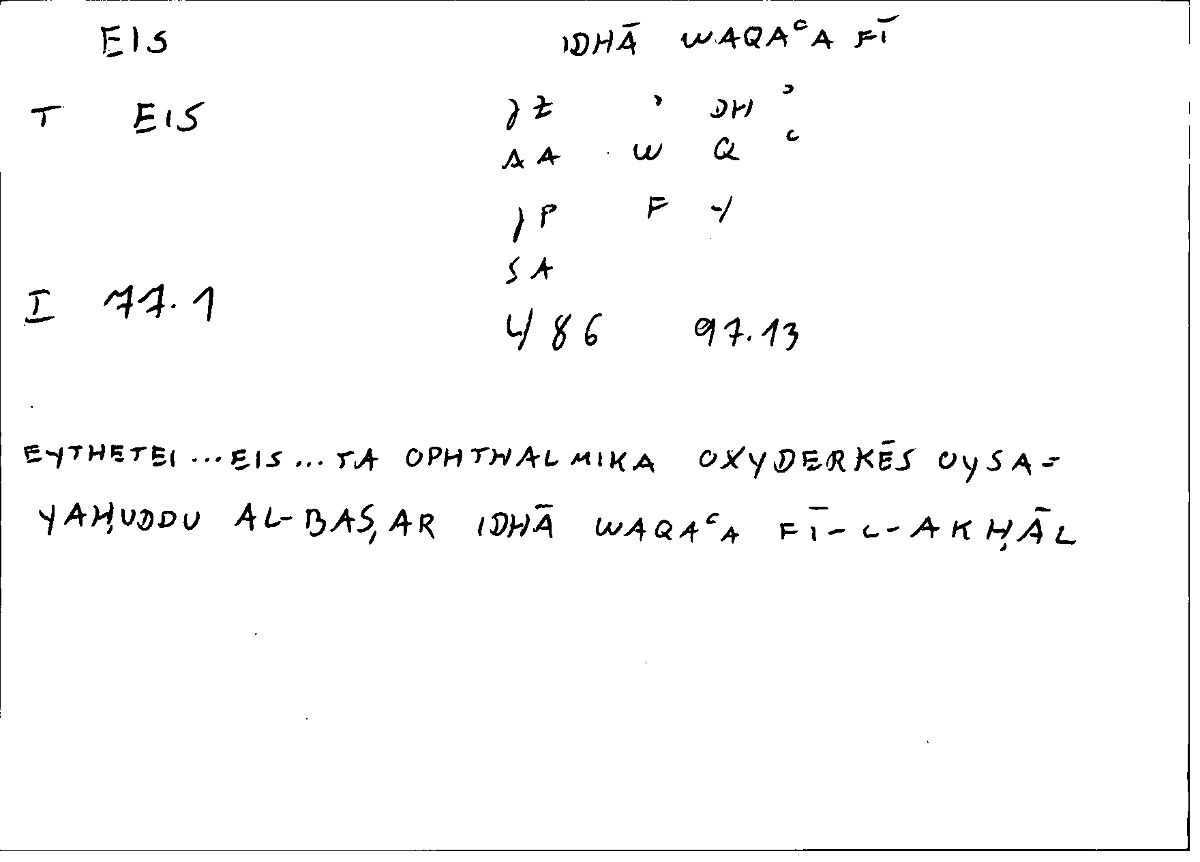 EIS IDHĀ WAQAʿA FĪ
T EIS ȷZ ʾ DH ʾ
AA W Q ʿ
ȷP F Y
SA
I 77.1 486 97.13
EYTHETEI ... EIS ... TA OPHTHALMIKA OXYDERKĒS OYSA =
YAḤUDDU AL-BAṢAR IDHĀ WAQAʿA FĪ-L-AKḤĀL